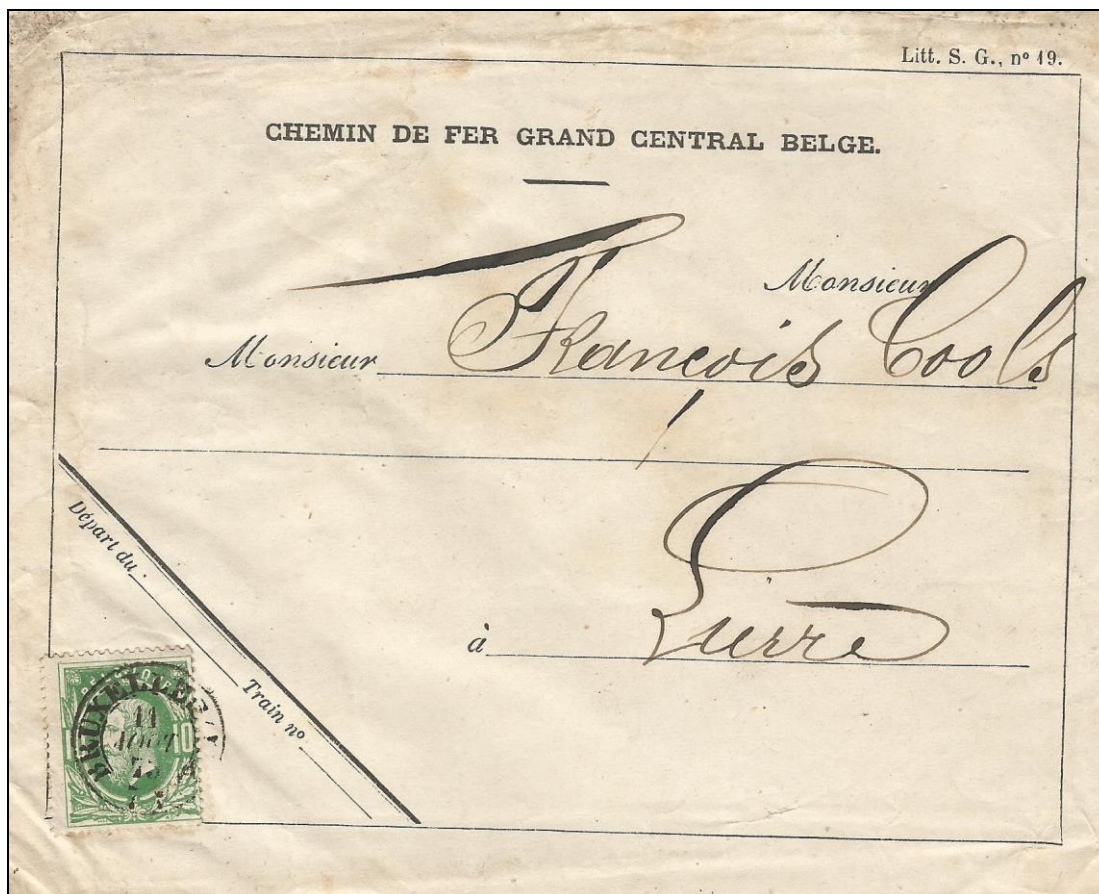 Litt. S. G., nº 19.
CHEMIN DE FER GRAND CENTRAL BELGE.
Monsieur
Monsieur François Cools
à Lierre
Départ du
Train nº
BRUXELLES
11
AOUT
10